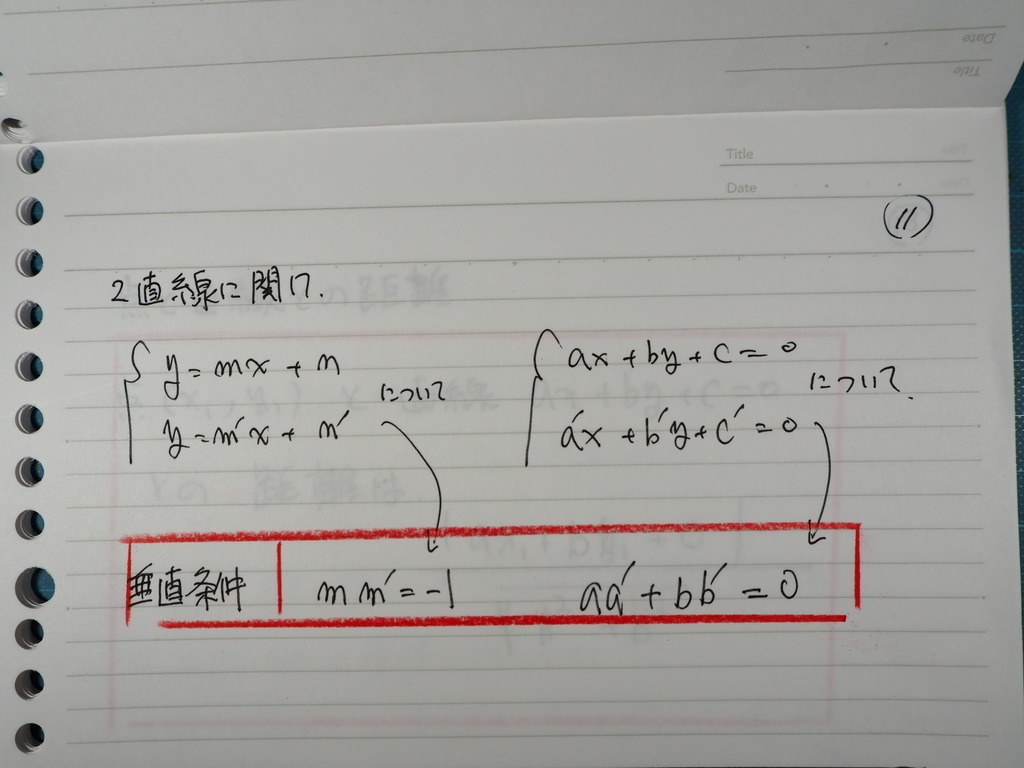 Date
Title
Title
Date
11
2直線に関して.
y=mx+n
y=m'x+n'
について
ax+by+c=0
a'x+b'y+c'=0
について.
垂直条件 mm'=-1 aa'+bb'=0